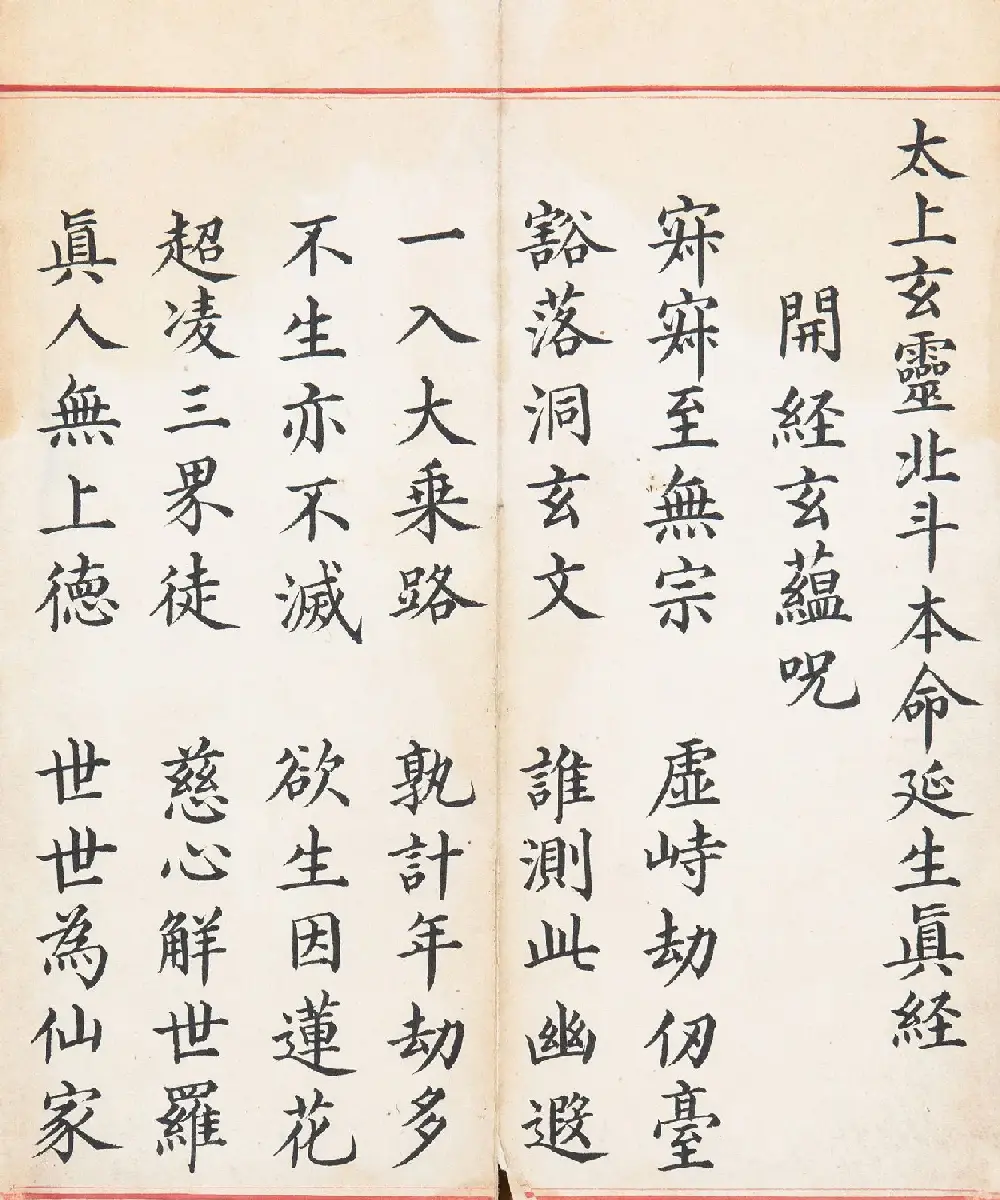 太上玄靈北斗本命延生眞経
開経玄蘊呪
寂寂至無宗 虛峙劫仞臺
豁落洞玄文 誰測此幽遐
一入大乗路 孰計年劫多
不生亦不滅 欲生因蓮花
超凌三界徒 慈心解世羅
眞人無上徳 世世為仙家